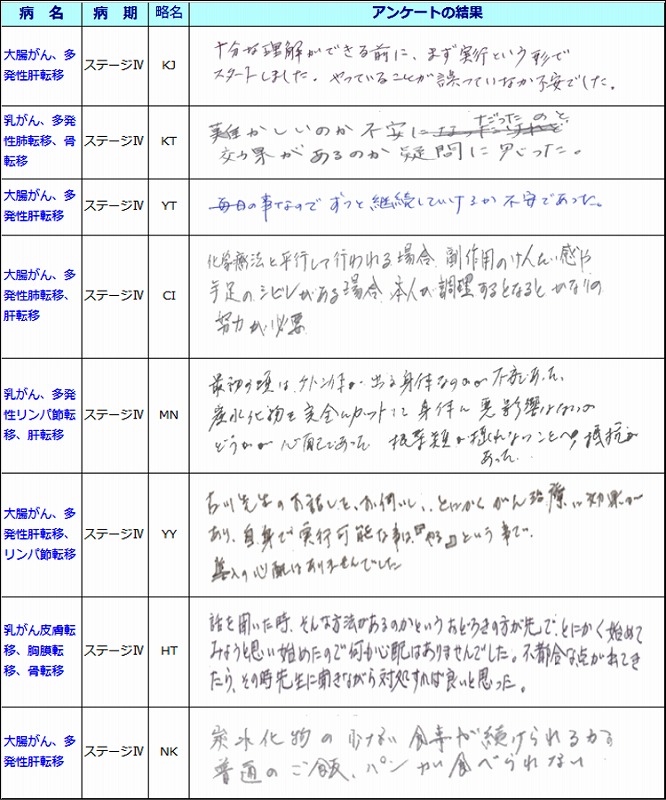 病　名　病　期　略名　アンケートの結果
大腸がん、多
発性肝転移
ステージⅣ
KJ
十分な理解ができる前に、まず実行という形で
スタートしました。やっていることが誤っていなか不安でした。
乳がん、多発
性肺転移、骨
転移
ステージⅣ
KT
難かしいのか不安に だったのと、
効果があるのか疑問に思った。
大腸がん、多
発性肝転移
ステージⅣ
YT
毎日の事なので ずっと継続していけるか不安であった。
大腸がん、多
発性肺転移、
肝転移
ステージⅣ
CI
化学療法と平行して行われる場合、副作用のけんたい感や
手足のシビレがある場合 本人が調理するとなるとかなりの
努力が必要
乳がん、多発
性リンパ節転
移、肝転移
ステージⅣ
MN
最初の頃は、ケトン体が出る身体なのか不安であった、
炭水化物を完全にカットして身体に悪影響はないの
どうかが心配であった 根菜類が摂れないことへの抵抗が
あった
大腸がん、多
発性肝転移、
リンパ節転移
ステージⅣ
YY
古川先生のお話しを、お伺いし、とにかくがん治療に効果が
あり、自身で実行可能な事は『やる』という事で、
導入の心配はありませんでした
乳がん皮膚転
移、胸膜転
移、骨転移
ステージⅣ
HT
話を聞いた時、そんな方法があるのかというおどろきの方が先で、とにかく始めて
みようと思い始めたので何か心配はありませんでした。不都合な点が出てき
たら、その時先生に聞きながら対処すれば良いと思った。
大腸がん、多
発性肝転移
ステージⅣ
NK
炭水化物の少ない食事が続けられるか
普通のご飯、パンが食べられない